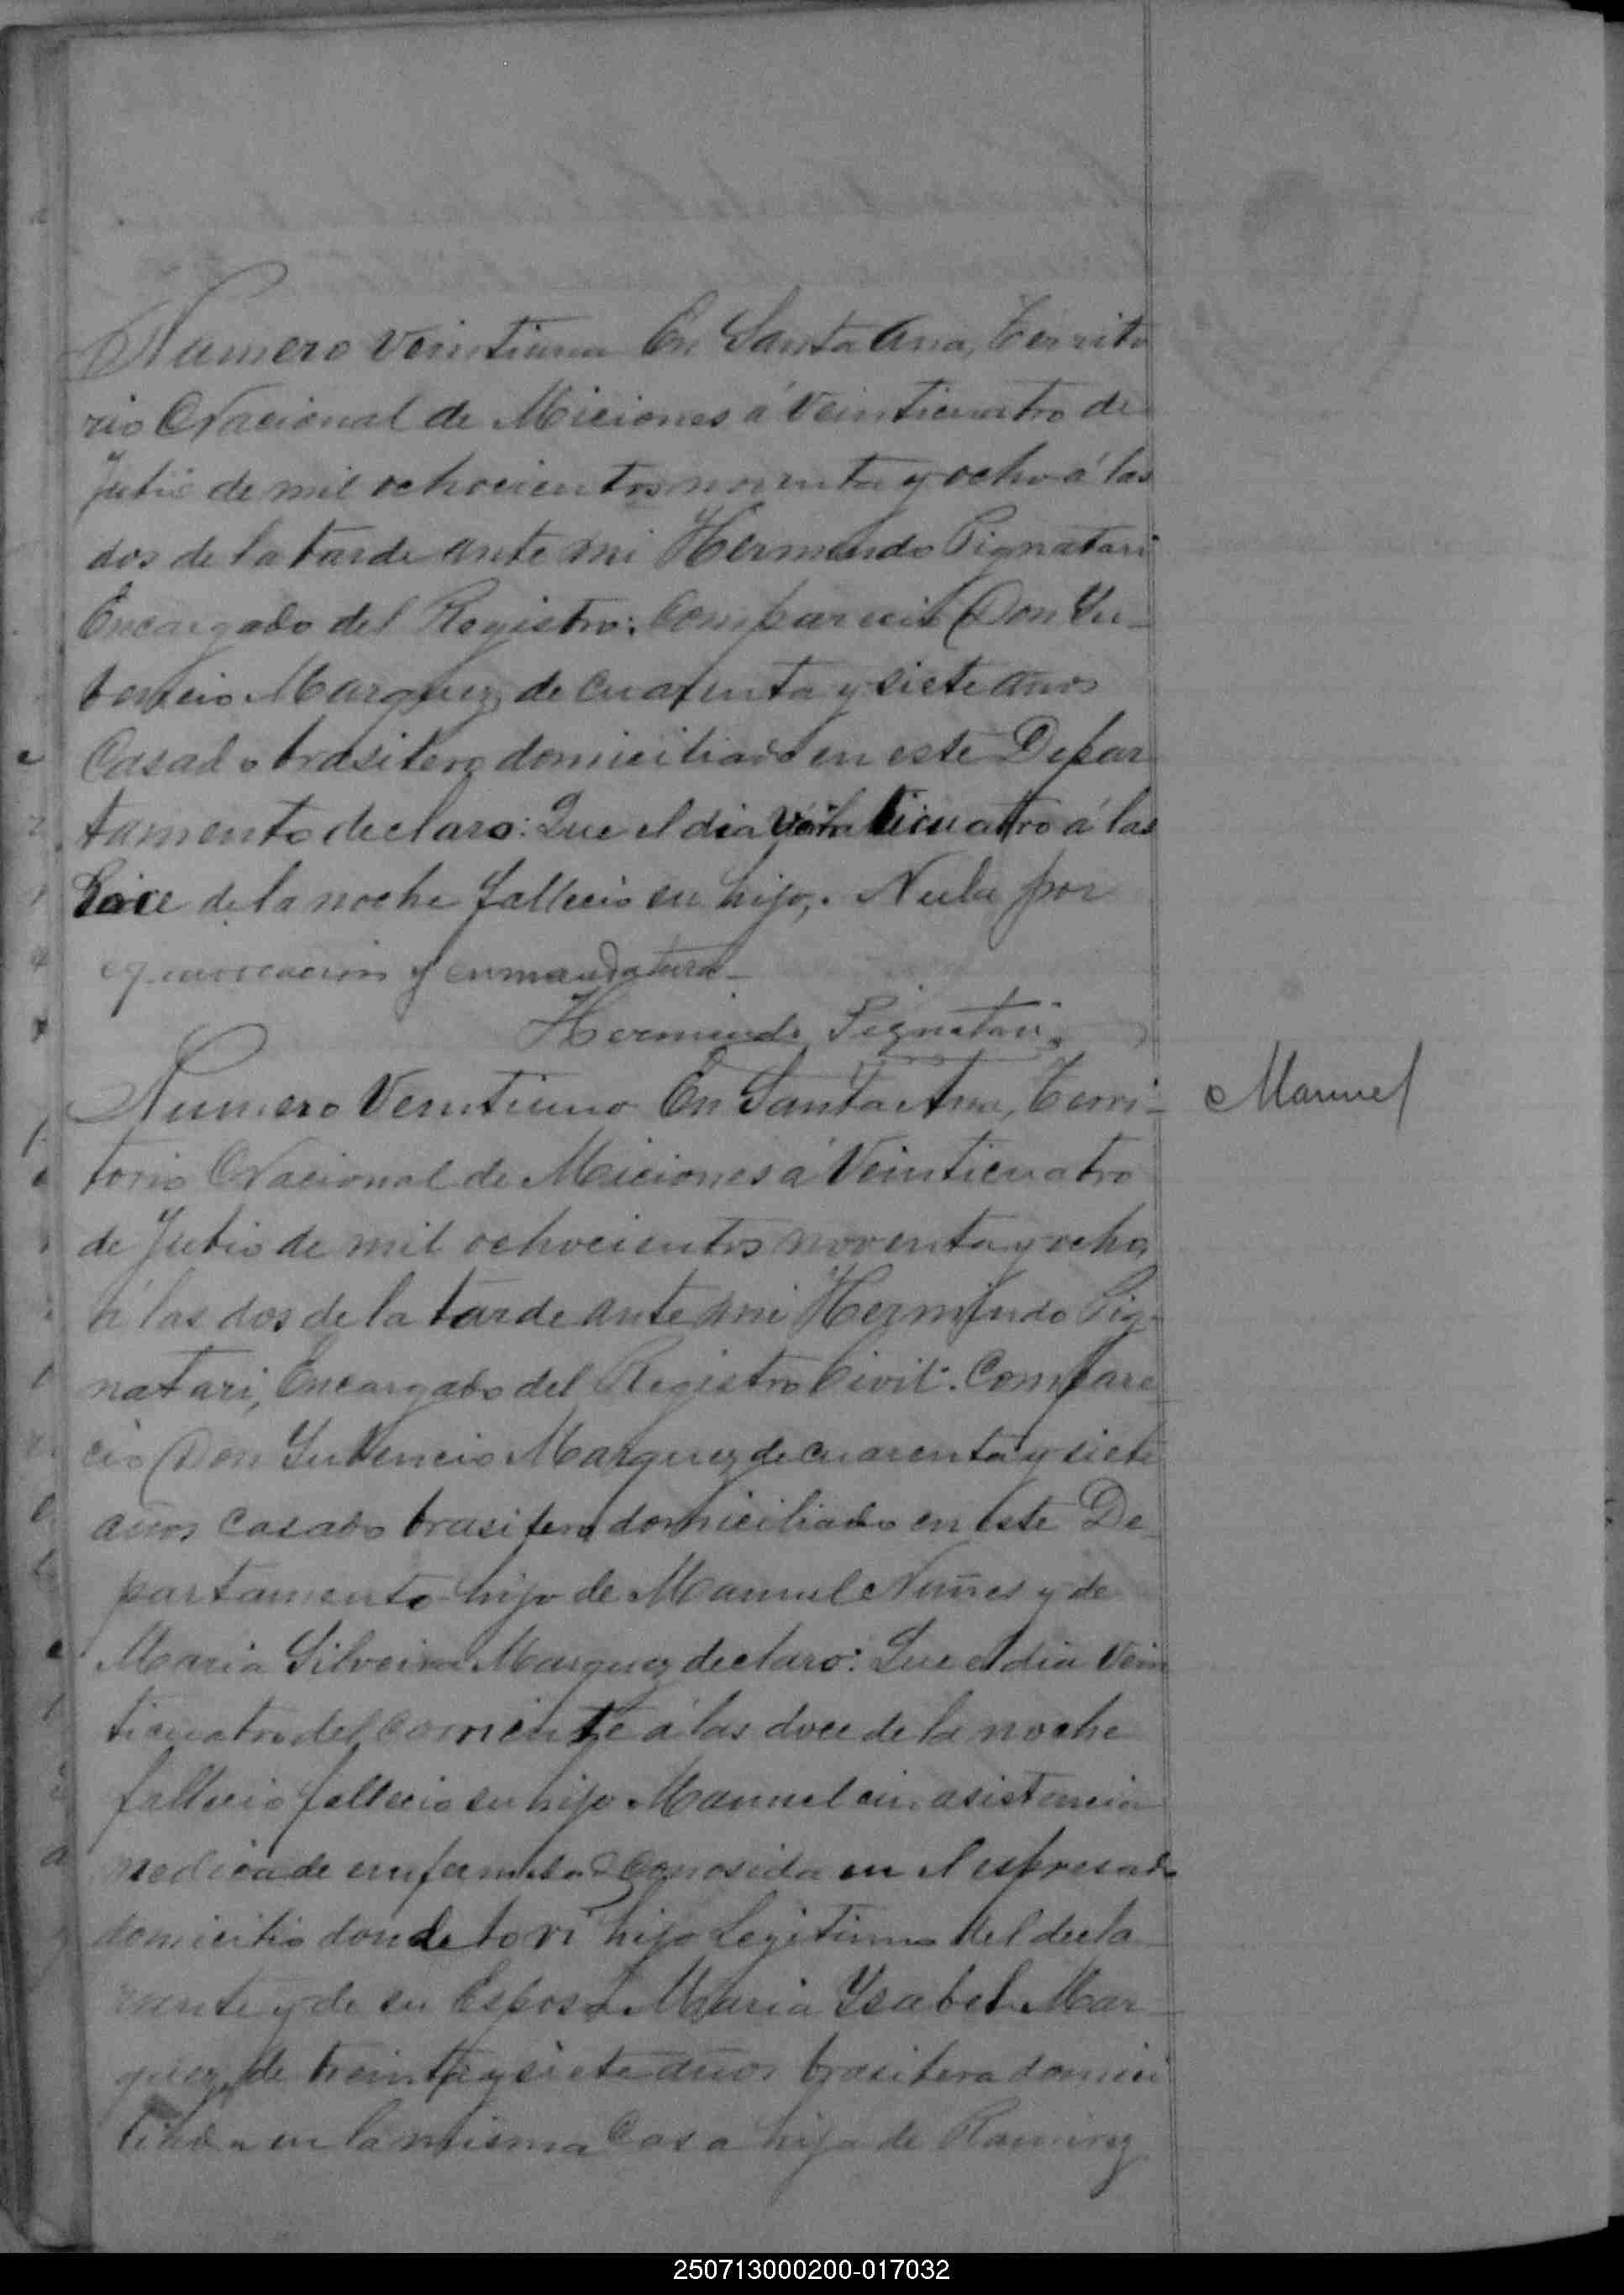 Numero Veintiuno En Santa Ana, Territo
rio Nacional de Miciones á Veinticuatro de
Julio de mil ochocientos noventa y ocho á las
dos de la tarde ante mi Hermindo Pignatari
Encargado del Registro: Comparecio Don Ju-
vencio Marquez, de cuarenta y siete años
Casado brasilero domiciliado en este Depar
tamento declaro: Que el dia veinticuatro á las
doce de la noche fallecio su hijo,. Nula por
equivocacion y enmandatura-
Hermindo Pignatari
Numero Veintiuno En Santa Ana, Terri-
Manuel
torio Nacional de Miciones á Veinticuatro
de Julio de mil ochocientos noventa y ocho,
á las dos de la tarde ante mi Hermindo Pig-
natari, Encargado del Registro Civil: Compare
cio Don Juvencio Marquez de cuarenta y siete
años casado brasilero domiciliado en este De-
partamento hijo de Manuel Nuñes y de
Maria Silveira Marquez declaro: Que el dia Vein
ticuatro del corriente á las doce de la noche
fallecio fallecio su hijo Manuel sin asistencia
medica de enfermedad conosida en el espresado
domicilio donde lo vi hijo Legitimo del decla-
rante y de su Esposa Maria Ysabel Mar-
quez, de treinta y siete años brasilera domici
liada en la misma Casa hija de Ramirez
250713000200-017032